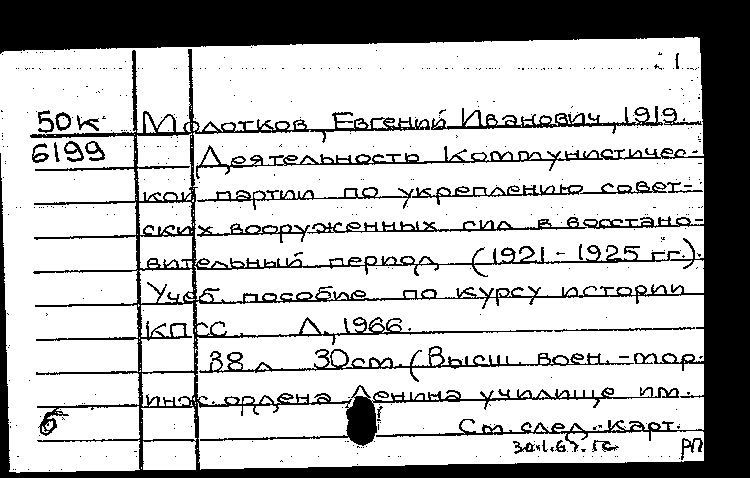 1
50к Молотков, Евгений Иванович, 1919.
6199 Деятельность Коммунистичес-
кой партии по укреплению совет-
ских вооруженных сил в восстано-
вительный период (1921-1925 гг.).
Учеб. пособие по курсу истории
КПСС. Л., 1966.
38 л 30 cm. (Высш. воен.-мор.
инж. ордена Ленина училище им.
б См. след. карт.
РП